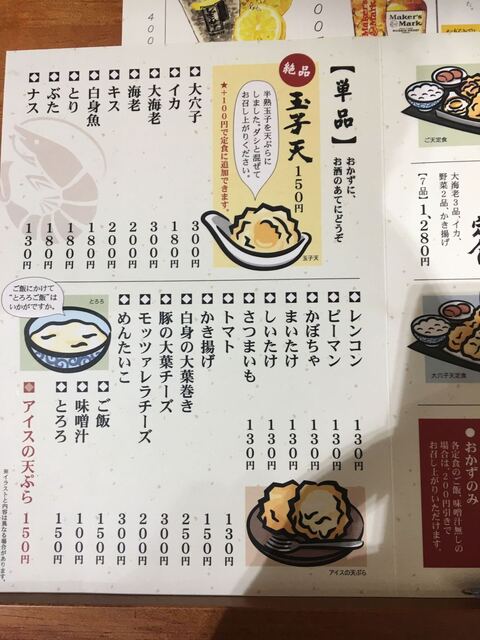 400
Maker's
Mark
Maker's
Mark
【単品】
おかずに、
お酒のあてにどうぞ
絶品
玉子天
150円
半熟玉子を天ぷらに
しました。ダシと混ぜて
お召し上がりください。
★+100円で定食に追加できます。
玉子天
◆大穴子 300円
◆イカ 180円
◆大海老 300円
◆海老 200円
◆キス 200円
◆白身魚 180円
◆とり 180円
◆ぶた 180円
◆ナス 130円
◆レンコン 130円
◆ピーマン 130円
◆かぼちゃ 130円
◆まいたけ 130円
◆しいたけ 130円
◆さつまいも 130円
◆トマト 130円
◆かき揚げ 150円
◆白身の大葉巻き 250円
◆豚の大葉チーズ 300円
◆モッツァレラチーズ 200円
◆めんたいこ 300円
◆ご飯 150円
◆味噌汁 100円
◆とろろ 150円
◆アイスの天ぷら 150円
ご飯にかけて
“とろろご飯”は
いかがですか。
とろろ
アイスの天ぷら
※イラストと内容は異なる場合があります。
ご天定食
大海老3品、イカ、
野菜2品、かき揚げ
【7品】
1,280円
大穴子天定食
●おかずのみ
各定食のご飯、味噌汁無しの
場合は、200円引きで
お召し上がりいただけます。